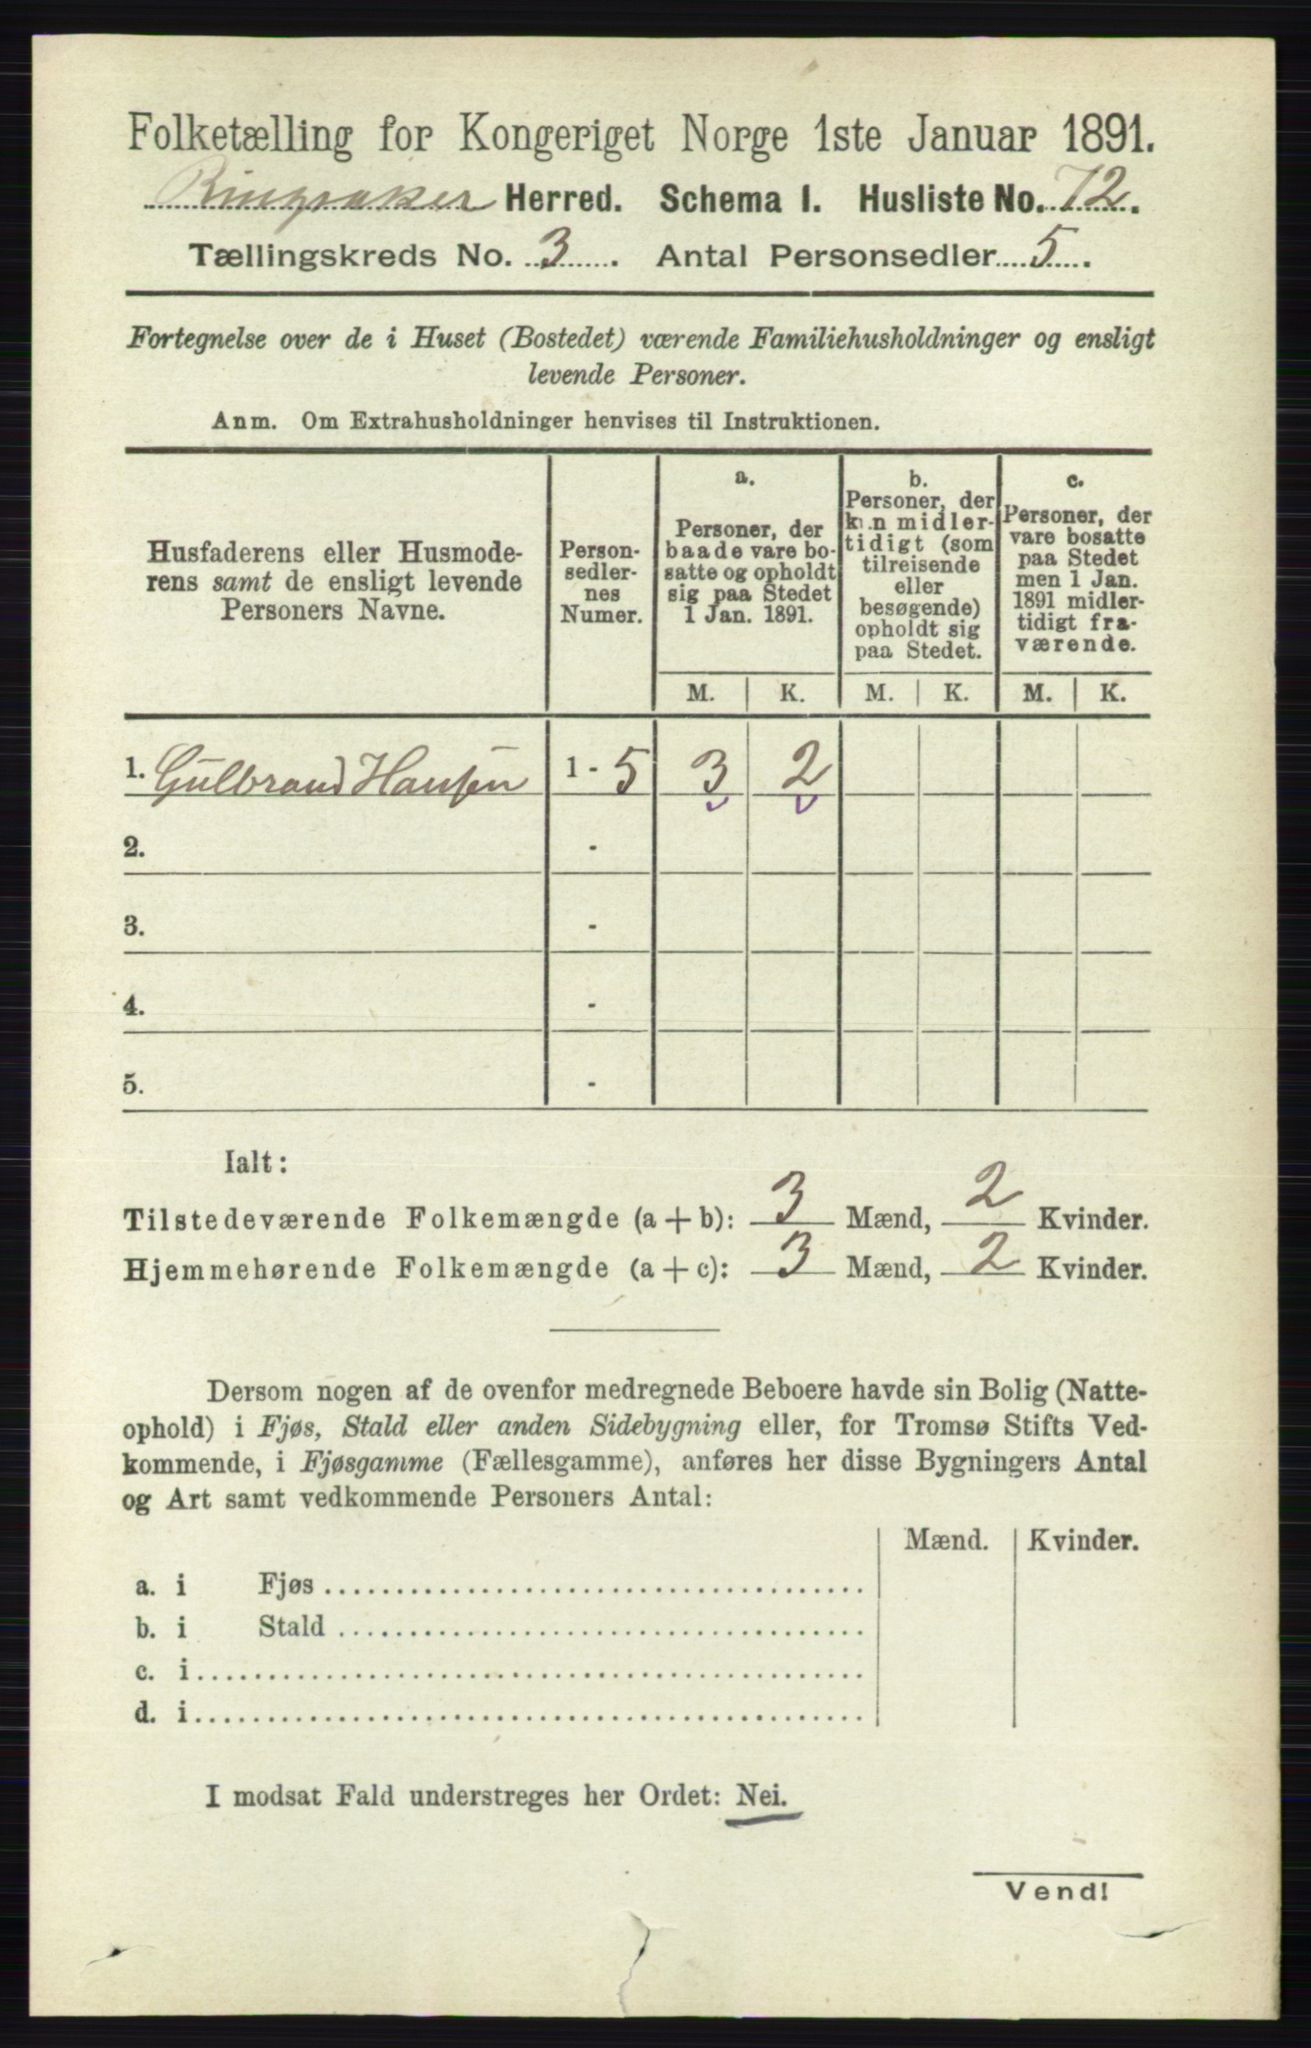 Folketælling for Kongeriget Norge 1ste Januar 1891.
Ringsaker Herred. Schema I. Husliste No. 72.
Tællingskreds No. 3. Antal Personsedler 5.
Fortegnelse over de i Huset (Bostedet) værende Familiehusholdninger og ensligt
levende Personer.
Anm. Om Extrahusholdninger henvises til Instruktionen.
Husfaderens eller Husmode-
rens samt de ensligt levende
Personers Navne.
Person-
sedler-
nes
Numer.
a.
Personer, der
baade vare bo-
satte og opholdt
sig paa Stedet
1 Jan. 1891.
b.
Personer, der
kun midler-
tidigt (som
tilreisende
eller
besøgende)
opholdt sig
paa Stedet.
c.
Personer, der
vare bosatte
paa Stedet
men 1 Jan.
1891 midler-
tidigt fra-
værende.
M. K. M. K. M. K.
1. Gulbrand Hansen 1 - 5 3 2
2. -
3. -
4. -
5. -
Ialt:
Tilstedeværende Folkemængde (a + b): 3 Mænd, 2 Kvinder.
Hjemmehørende Folkemængde (a + c): 3 Mænd, 2 Kvinder.
Dersom nogen af de ovenfor medregnede Beboere havde sin Bolig (Natte-
ophold) i Fjøs, Stald eller anden Sidebygning eller, for Tromsø Stifts Ved-
kommende, i Fjøsgamme (Fællesgamme), anføres her disse Bygningers Antal
og Art samt vedkommende Personers Antal:
Mænd. Kvinder.
a. i Fjøs
b. i Stald
c. i
d. i
I modsat Fald understreges her Ordet: Nei.
Vend!